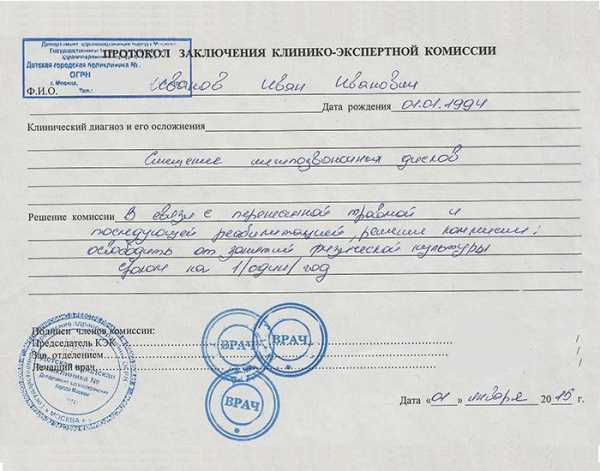 Департамент здравоохранения города Москвы
Государственное
здравоохранения
ПРОТОКОЛ ЗАКЛЮЧЕНИЯ КЛИНИКО-ЭКСПЕРТНОЙ КОМИССИИ
Детская городская поликлиника №
ОГРН
г. Москва,
Тел.:
Ф.И.О. Иванов Иван Иванович
Дата рождения 01.01.1994
Клинический диагноз и его осложнения
Смещение межпозвоночных дисков
Решение комиссии В связи с перенесенной травмой и
последующей реабилитацией, решение комиссии:
освободить от занятий физической культуры
сроком на 1/один/ год
Подписи членов комиссии:
Председатель КЭК
Зав. отделением
Лечащий врач
ВРАЧ
ВРАЧ
ВРАЧ
поликлиника №
Департамент здравоохранения
города Москвы
МОСКВА
Дата «01» января 2015 г.